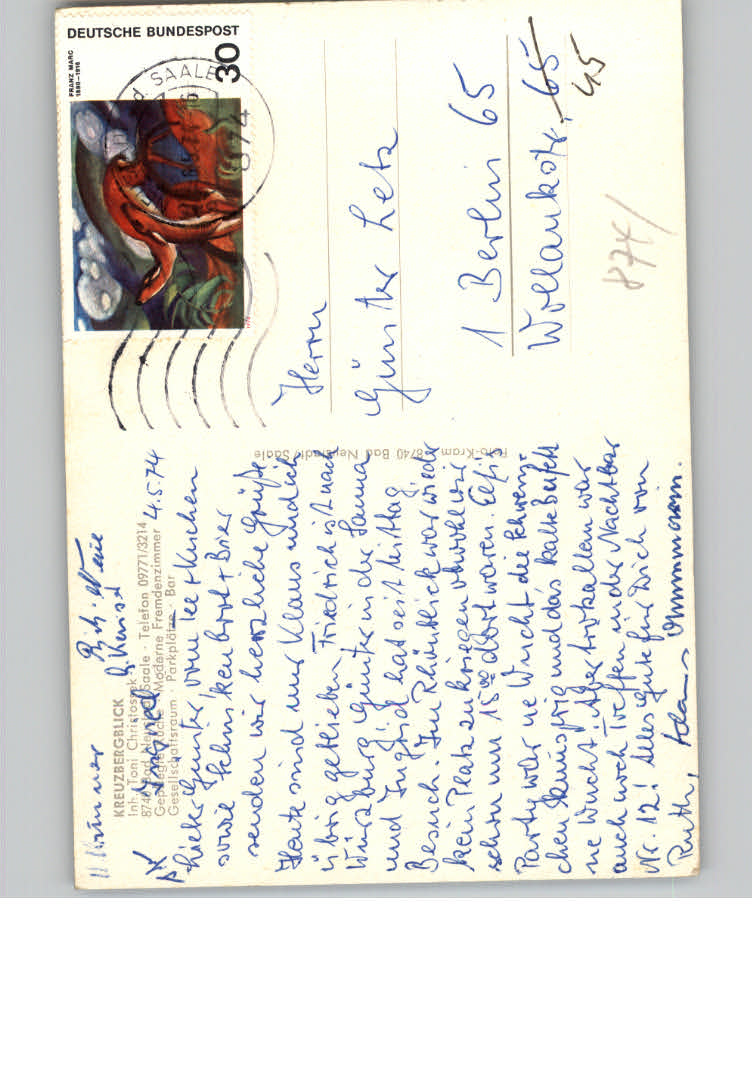 KREUZBERGBLICK
Inh. Toni Christossek
8740 Bad Neustadt/Saale · Telefon 09771/3214
Gepflegte Küche · Moderne Fremdenzimmer
Gesellschaftsraum · Parkplätze · Bar
4.5.74
Lieber Günter, vom Tee + Kuchen
sowie Schinkenbrot + Bier
senden wir herzliche Grüße
Heute sind nur Klaus und ich
übrig geblieben. Friedrich ist nach
Würzburg, Günter in der Sauna
und Ingrid hat seit Mittag
Besuch. Im Rhönblick war wieder
kein Platz zu kriegen obwohl wir
schon um 15 00 dort waren. Elfis
Party war ne Wucht die
und das kalte Buffett
ne Wucht! Aber trotz allem war
auch noch Treffen in der Nachtbar
Nr. 12! Alles Gute für Dich von
Ruth,
Foto-Kram · 8740 Bad Neustadt/Saale
DEUTSCHE BUNDESPOST
30
FRANZ MARC
1880-1916
d SAALE
874
Herrn
Günther Letz
1 Berlin 65
Wollankstr. 65
45
874/